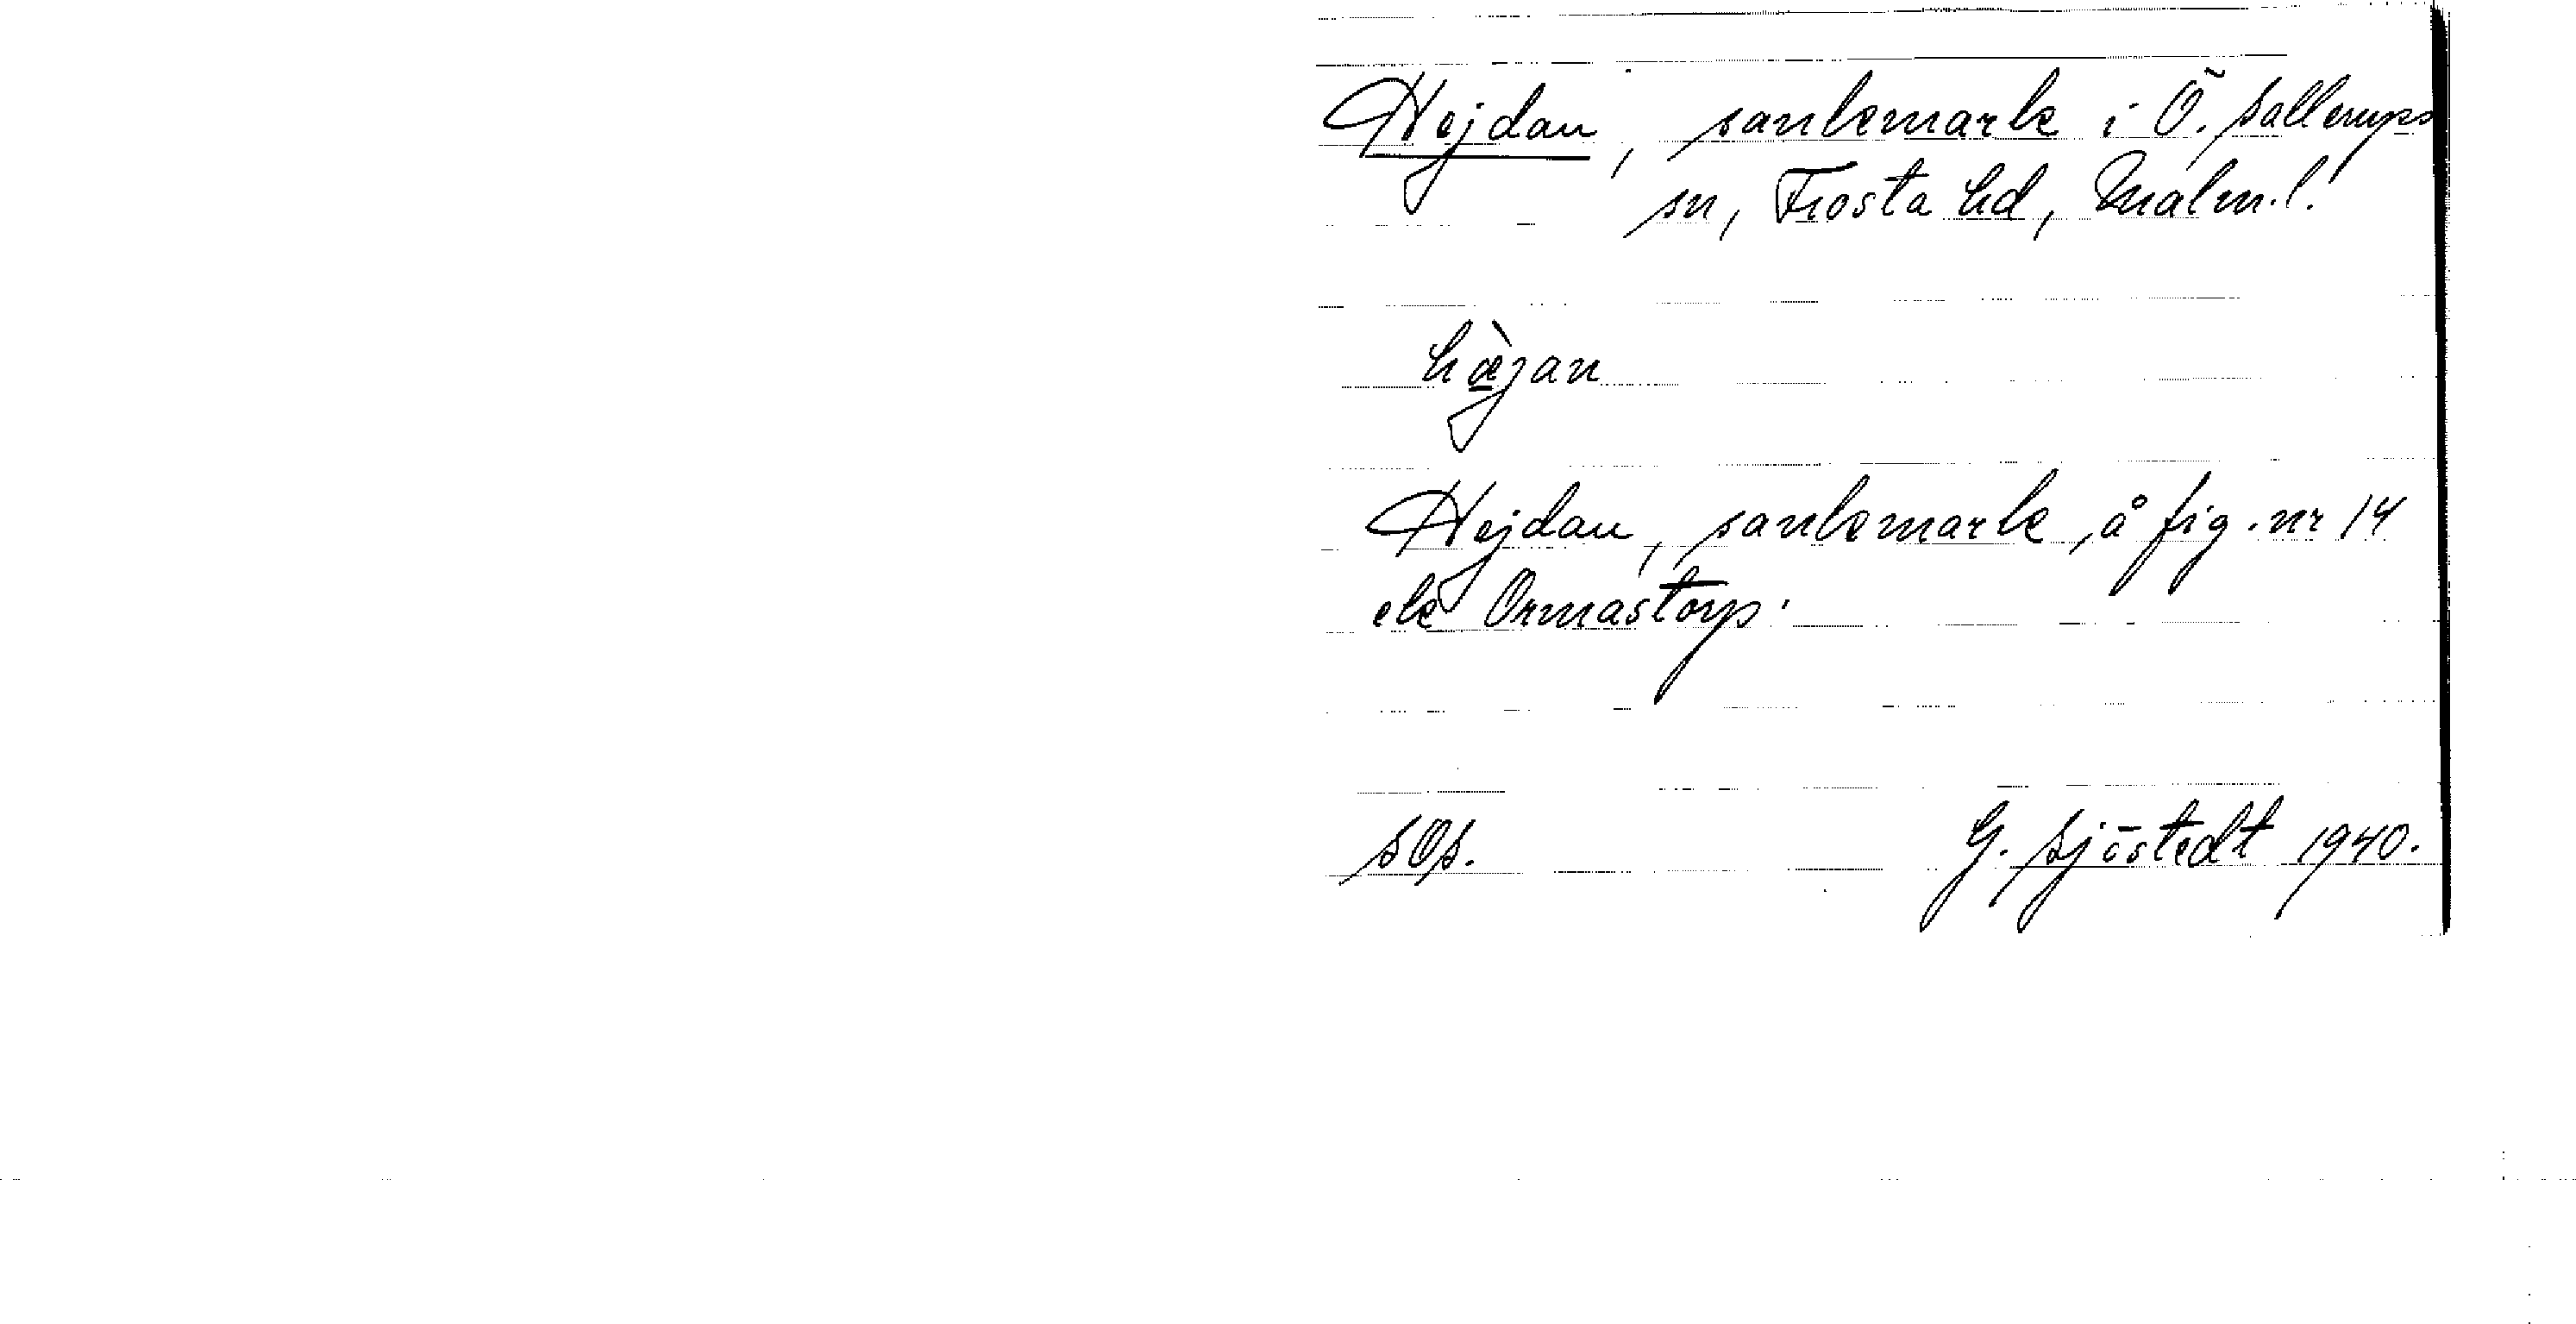 Hejdan, sankmark i Ö. Sallerups
sn, Frosta hd, Malm.l.
hæ̀jan
Hejdan, sankmark, å fig. nr 14
ek Ormastorp.
SOS.
G. Sjöstedt 1940.